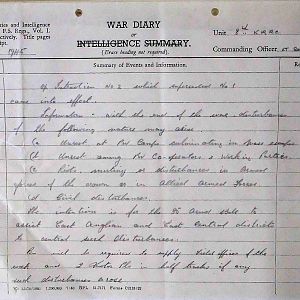 WAR DIARY
or
INTELLIGENCE SUMMARY.
(Erase heading not required).
Unit 8th K.R.R.C.
Commanding Officer
P.S. Regs., Vol. I.
Title pages
Summary of Events and Information.
of Instruction No 2 which superseded No 1
came into effect.
Information - with the end of the war disturbances
of the following nature may arise.
(a) Unrest at PW Camps culminating in mass escapes
(b) Unrest among PW Co-operators & Working Parties.
(c) Riots, mutiny or disturbances in armed
forces of the crown or in Allied Armed Forces.
(d) Civil disturbances.
The intention is for the
assist East Anglian and East Central districts
to control such disturbances.
will be required to supply
and 2 Motor Pls in half tracks if any
such disturbances arose